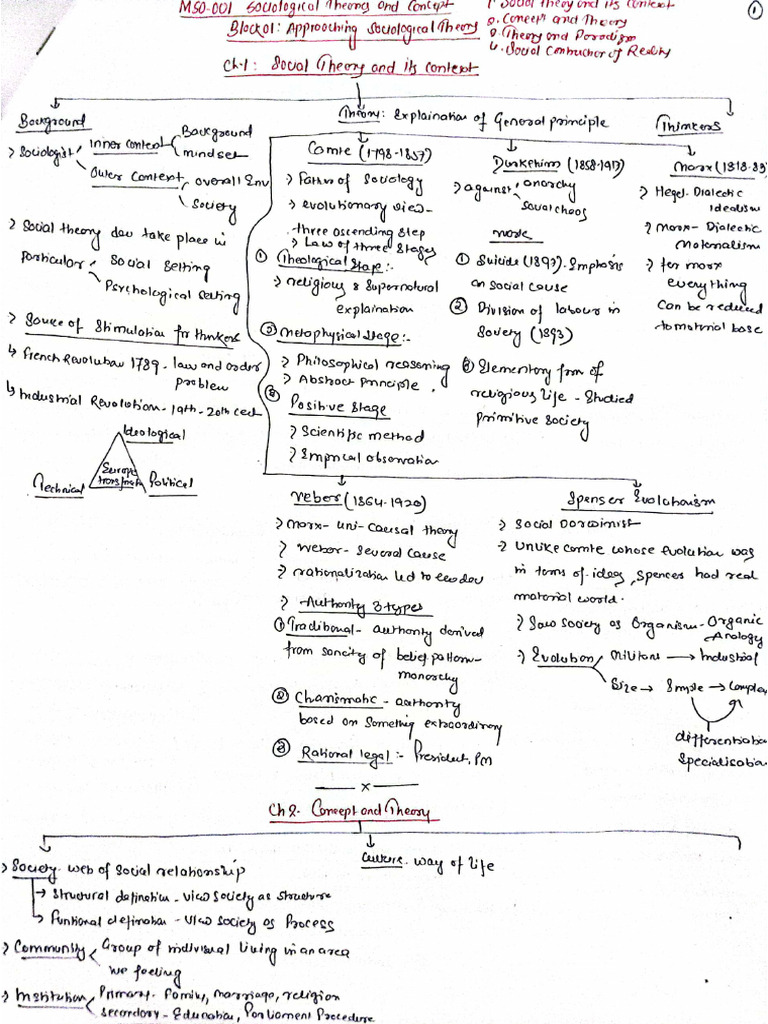 MSO-001 Sociological Theories and Concept
Block 01: Approaching Sociological Theory
1. Social Theory and its Context
2. Concept and Theory
3. Theory and Paradigm
4. Social Construction of Reality
①
Ch-1: Social Theory and its context
Background
> Sociologist
Inner context
Background
mindset
Outer Context
overall Env
Society
> Social theory dev take place in
Particular
Social Setting
Psychological setting
> Source of Stimulation for thinkers
↳ French Revolution 1789- law and order
problem
↳ Industrial Revolution- 19th-20th cect
Ideological
Europe
Technical
Political
Theory: Explaination of General principle
Thinkers
Comte (1798-1857)
> Father of Sociology
> evolutionary view-
three ascending step
> Law of three stages
① Theological Stage:-
> religious & Supernatural
explaination
② Metaphysical Stage:-
> Philosophical reasoning
> Abstract Principle.
③ Positive Stage
> Scientific method
> Emprical observation
Durkehim (1858-1917)
> against
anarchy
Social chaos
① Suicide (1897). Emphasis
on social cause
② Division of labour in
Society (1893)
③ Elementary form of
religious life - Studied
Primitive Society
Marx (1818-83)
> Hegel- Dialectic
Idealism
> Marx- Dialectic
Materialism
> for marx
everything
can be reduced
to material base
Weber (1864-1920)
> Marx- uni-causal theory
> Weber- Several cause
> rationalization led to
> Authority 3 types
① Traditional- authority derived
from sancity of belief pattern-
monarchy
② Charismatic - authority
based on something extraordinary
③ Rational legal:- President, PM
Spenser Evolutionism
> Social Darwinist
> Unlike comte whose evolution was
in terms of ideas, Spences had real
material world.
> Saw society as Organism- Organic
Analogy
> Evolution
Militians → Industrial
Size → Simple → Complex
differentiation
Specialisation
— x —
Ch 2- Concept and Theory
> Society- web of Social relationship
→ Structural defination - view society as structure
→ Funtional defination - view society as Process
> Community
Group of individual living in an area
we feeling
> Institution
Primary- Family, marriage, religion
secondary- Education, Parliament Procedure
Culture- way of life